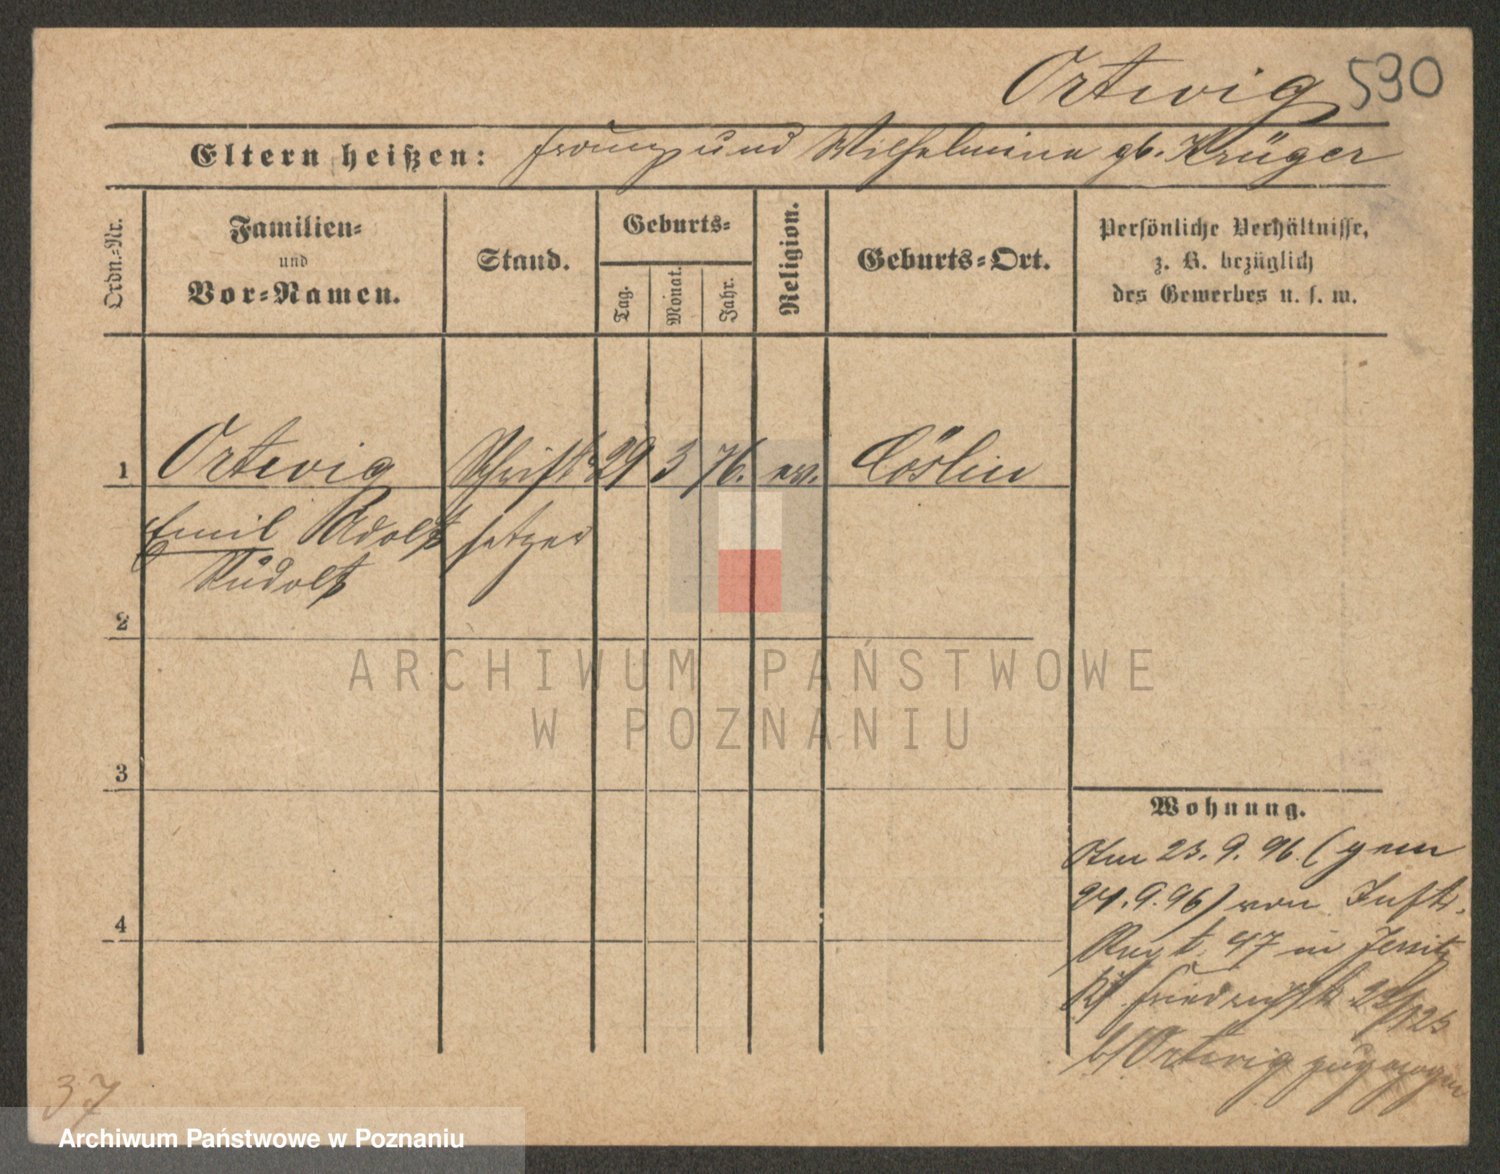 Ortwig 590
Eltern heißen: Franz und Wilhelmine gb. Krüger
Ordn.-Nr.
Familien-
und
Vor-Namen.
Stand.
Geburts-
Tag.
Monat.
Jahr.
Religion.
Geburts-Ort.
Persönliche Verhältnisse,
z. B. bezüglich
des Gewerbes u. s. w.
1 Ortwig Schrift- 29 3 76. ev. Cöslin
Emil Adolf setzer
Rudolf
2
ARCHIWUM PAŃSTWOWE
W POZNANIU
3
Wohnung.
Am 23. 9. 96. (gem
24. 9. 96) von Inftr.
4
Rgt. 47 in Jersitz
Friedrichstr.
b/ Ortwig zugezogen
37
Archiwum Państwowe w Poznaniu